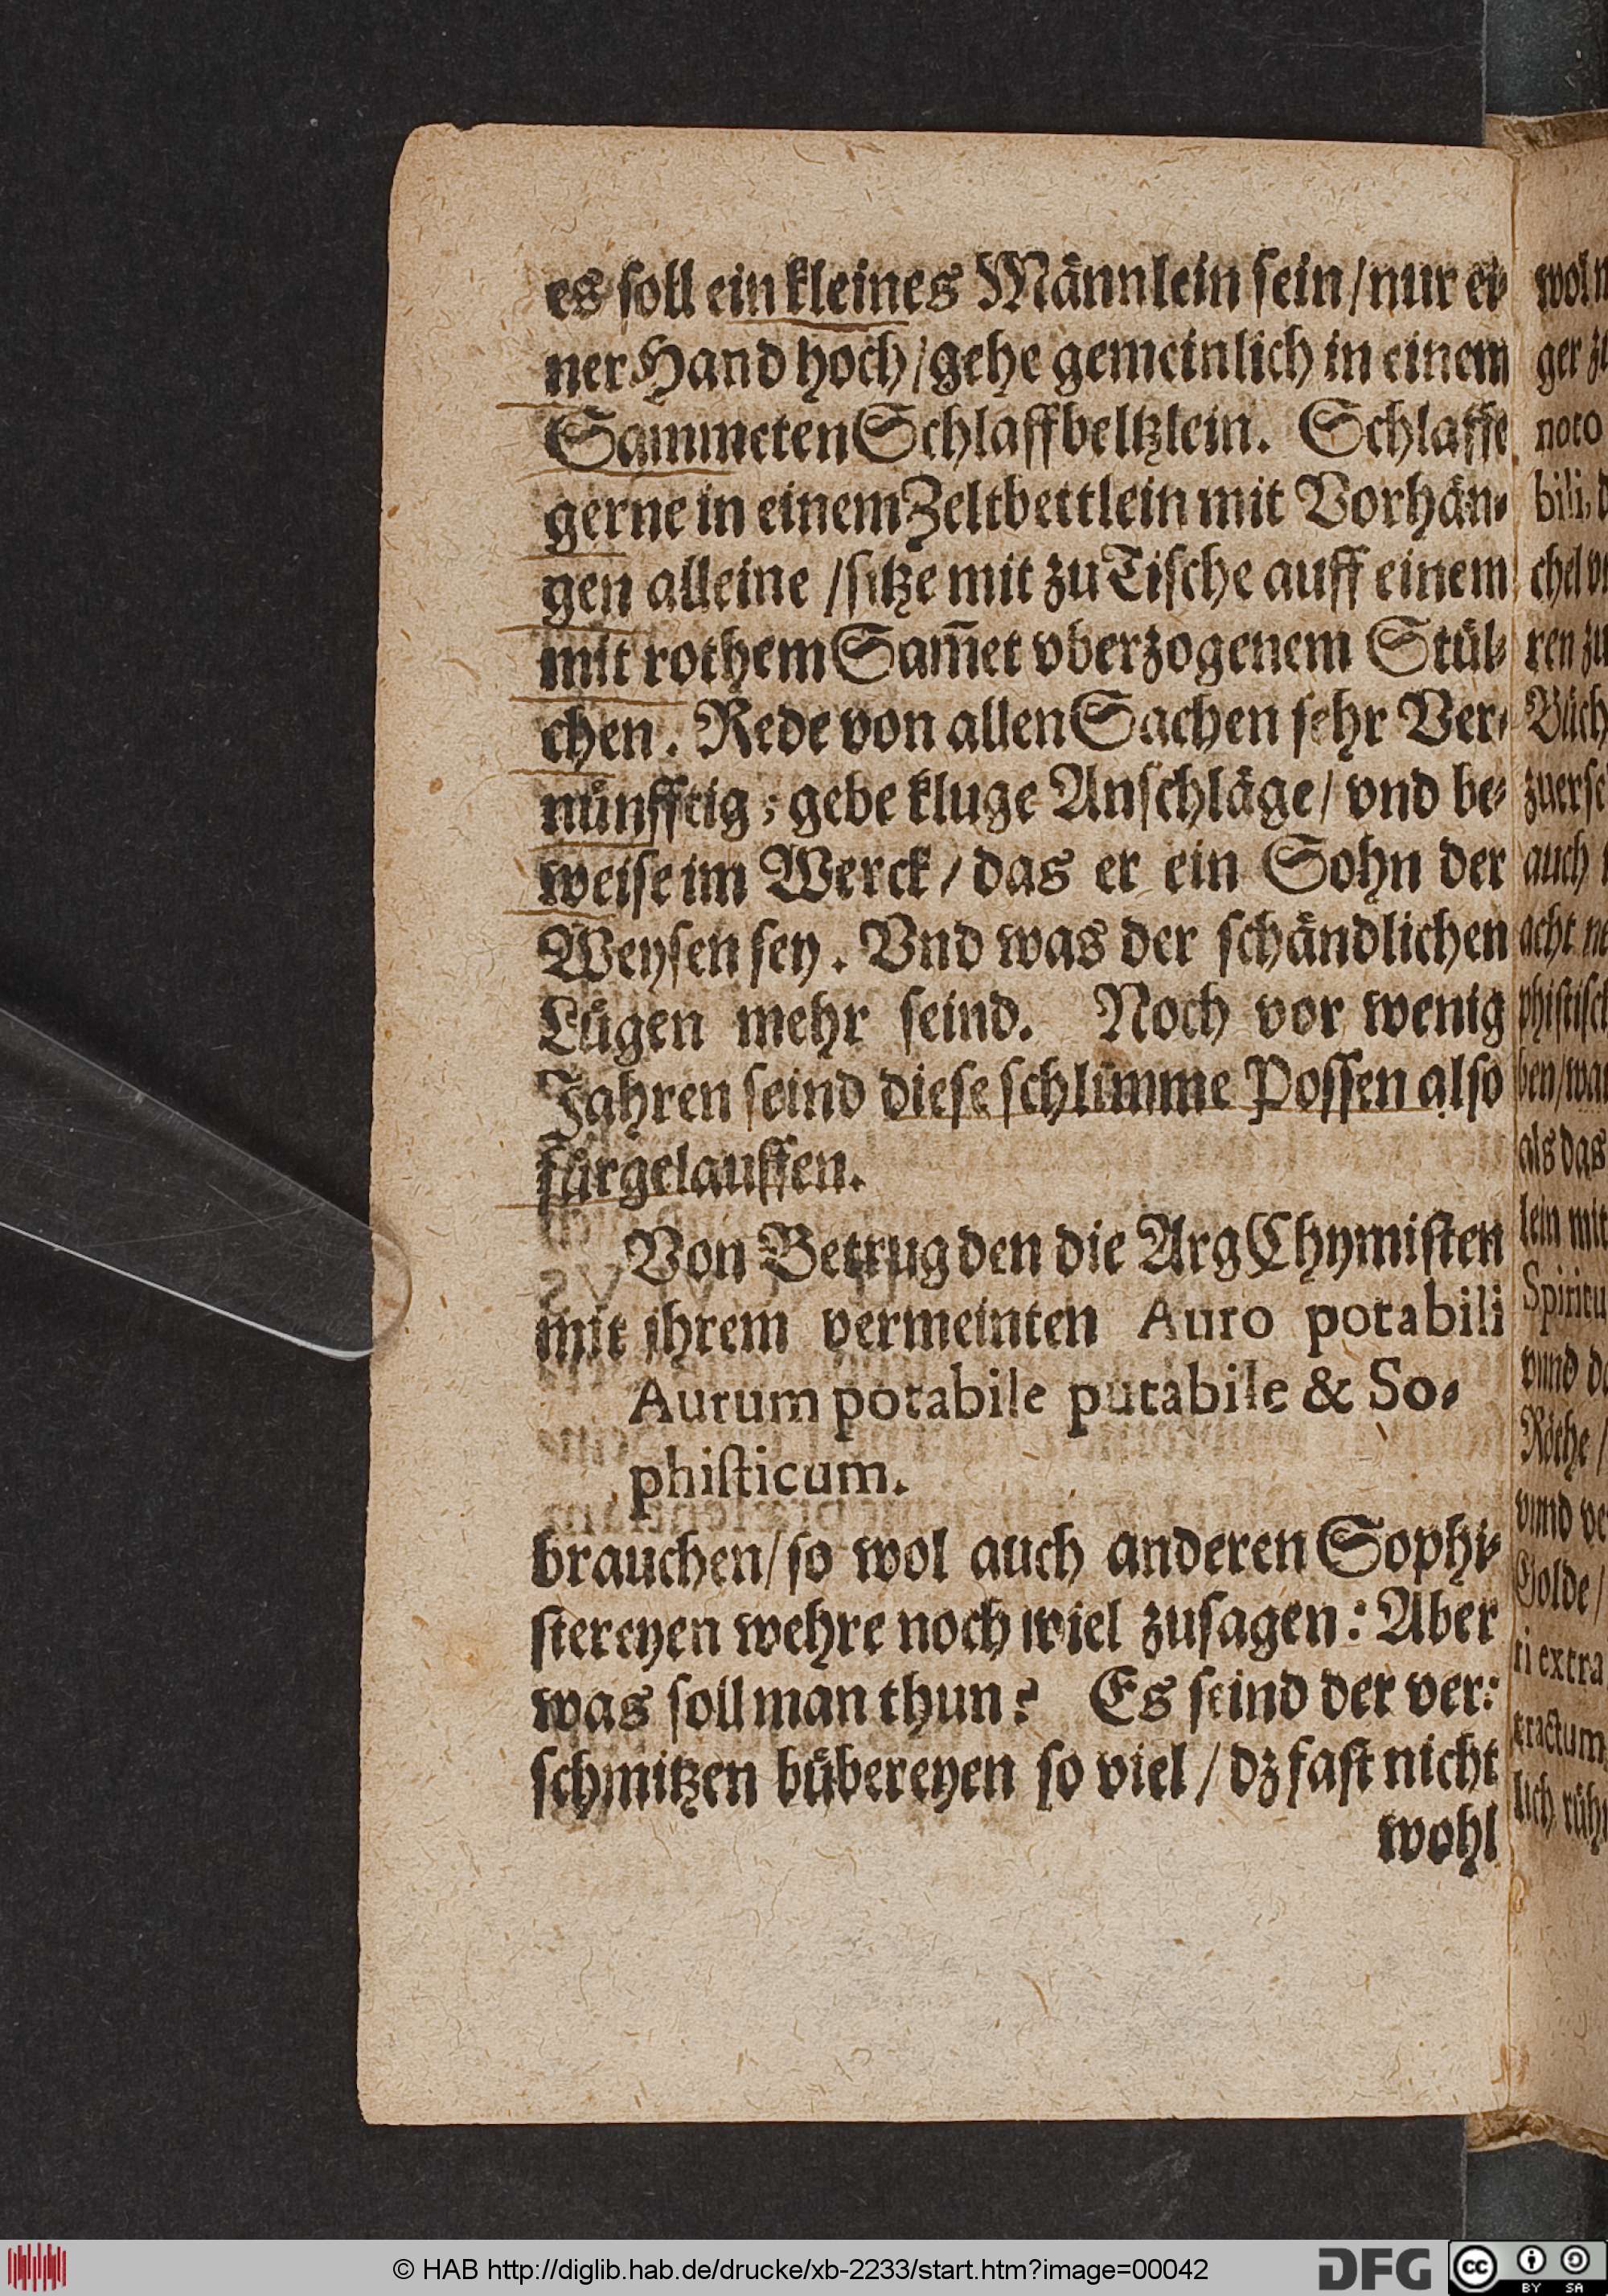 es soll ein kleines Männlein sein/nur ei-
ner Hand hoch/gehe gemeinlich in einem
Sammeten Schlaffbeltzlein. Schlaffe
gerne in einem Zeltbettlein mit Vorhän-
gen alleine /sitze mit zu Tische auff einem
mit rothem Sam̄et vberzogenem Stül-
chen. Rede von allen Sachen sehr Ver-
nünfftig; gebe kluge Anschläge/ vnd be-
weise im Werck/ das er ein Sohn der
Weysen sey. Vnd was der schändlichen
Lügen mehr seind. Noch vor wenig
Jahren seind diese schlimme Possen also
fürgelauffen.
Von Betrug den die Arg Chymisten
mit ihrem vermeinten Auro potabili
Aurum potabile putabile & So-
phisticum.
brauchen/so wol auch anderen Sophi-
stereyen wehre noch wiel zusagen: Aber
was soll man thun? Es seind der ver:
schmitzen bübereyen so viel / dz fast nicht
wohl
ger
noto
bili,
ren zu
Büch
auch
acht ne
phistisch
ben/wan
als das
lein mit
Spiritu
vnnd
Röthe /
vnnd ve
Golde /
ri extra
tractum
lich rüh
© HAB http://diglib.hab.de/drucke/xb-2233/start.htm?image=00042
DFG
cc
BY SA